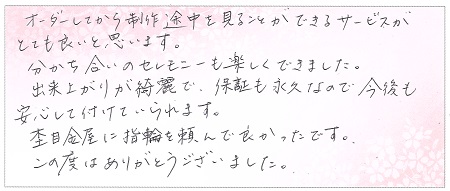 オーダーしてから制作途中を見ることができるサービスが
とても良いと思います。
分かち合いのセレモニーも楽しくできました。
出来上がりが綺麗で、保証も永久なので今後も
安心して付けていられます。
杢目金屋に指輪を頼んで良かったです。
この度はありがとうございました。